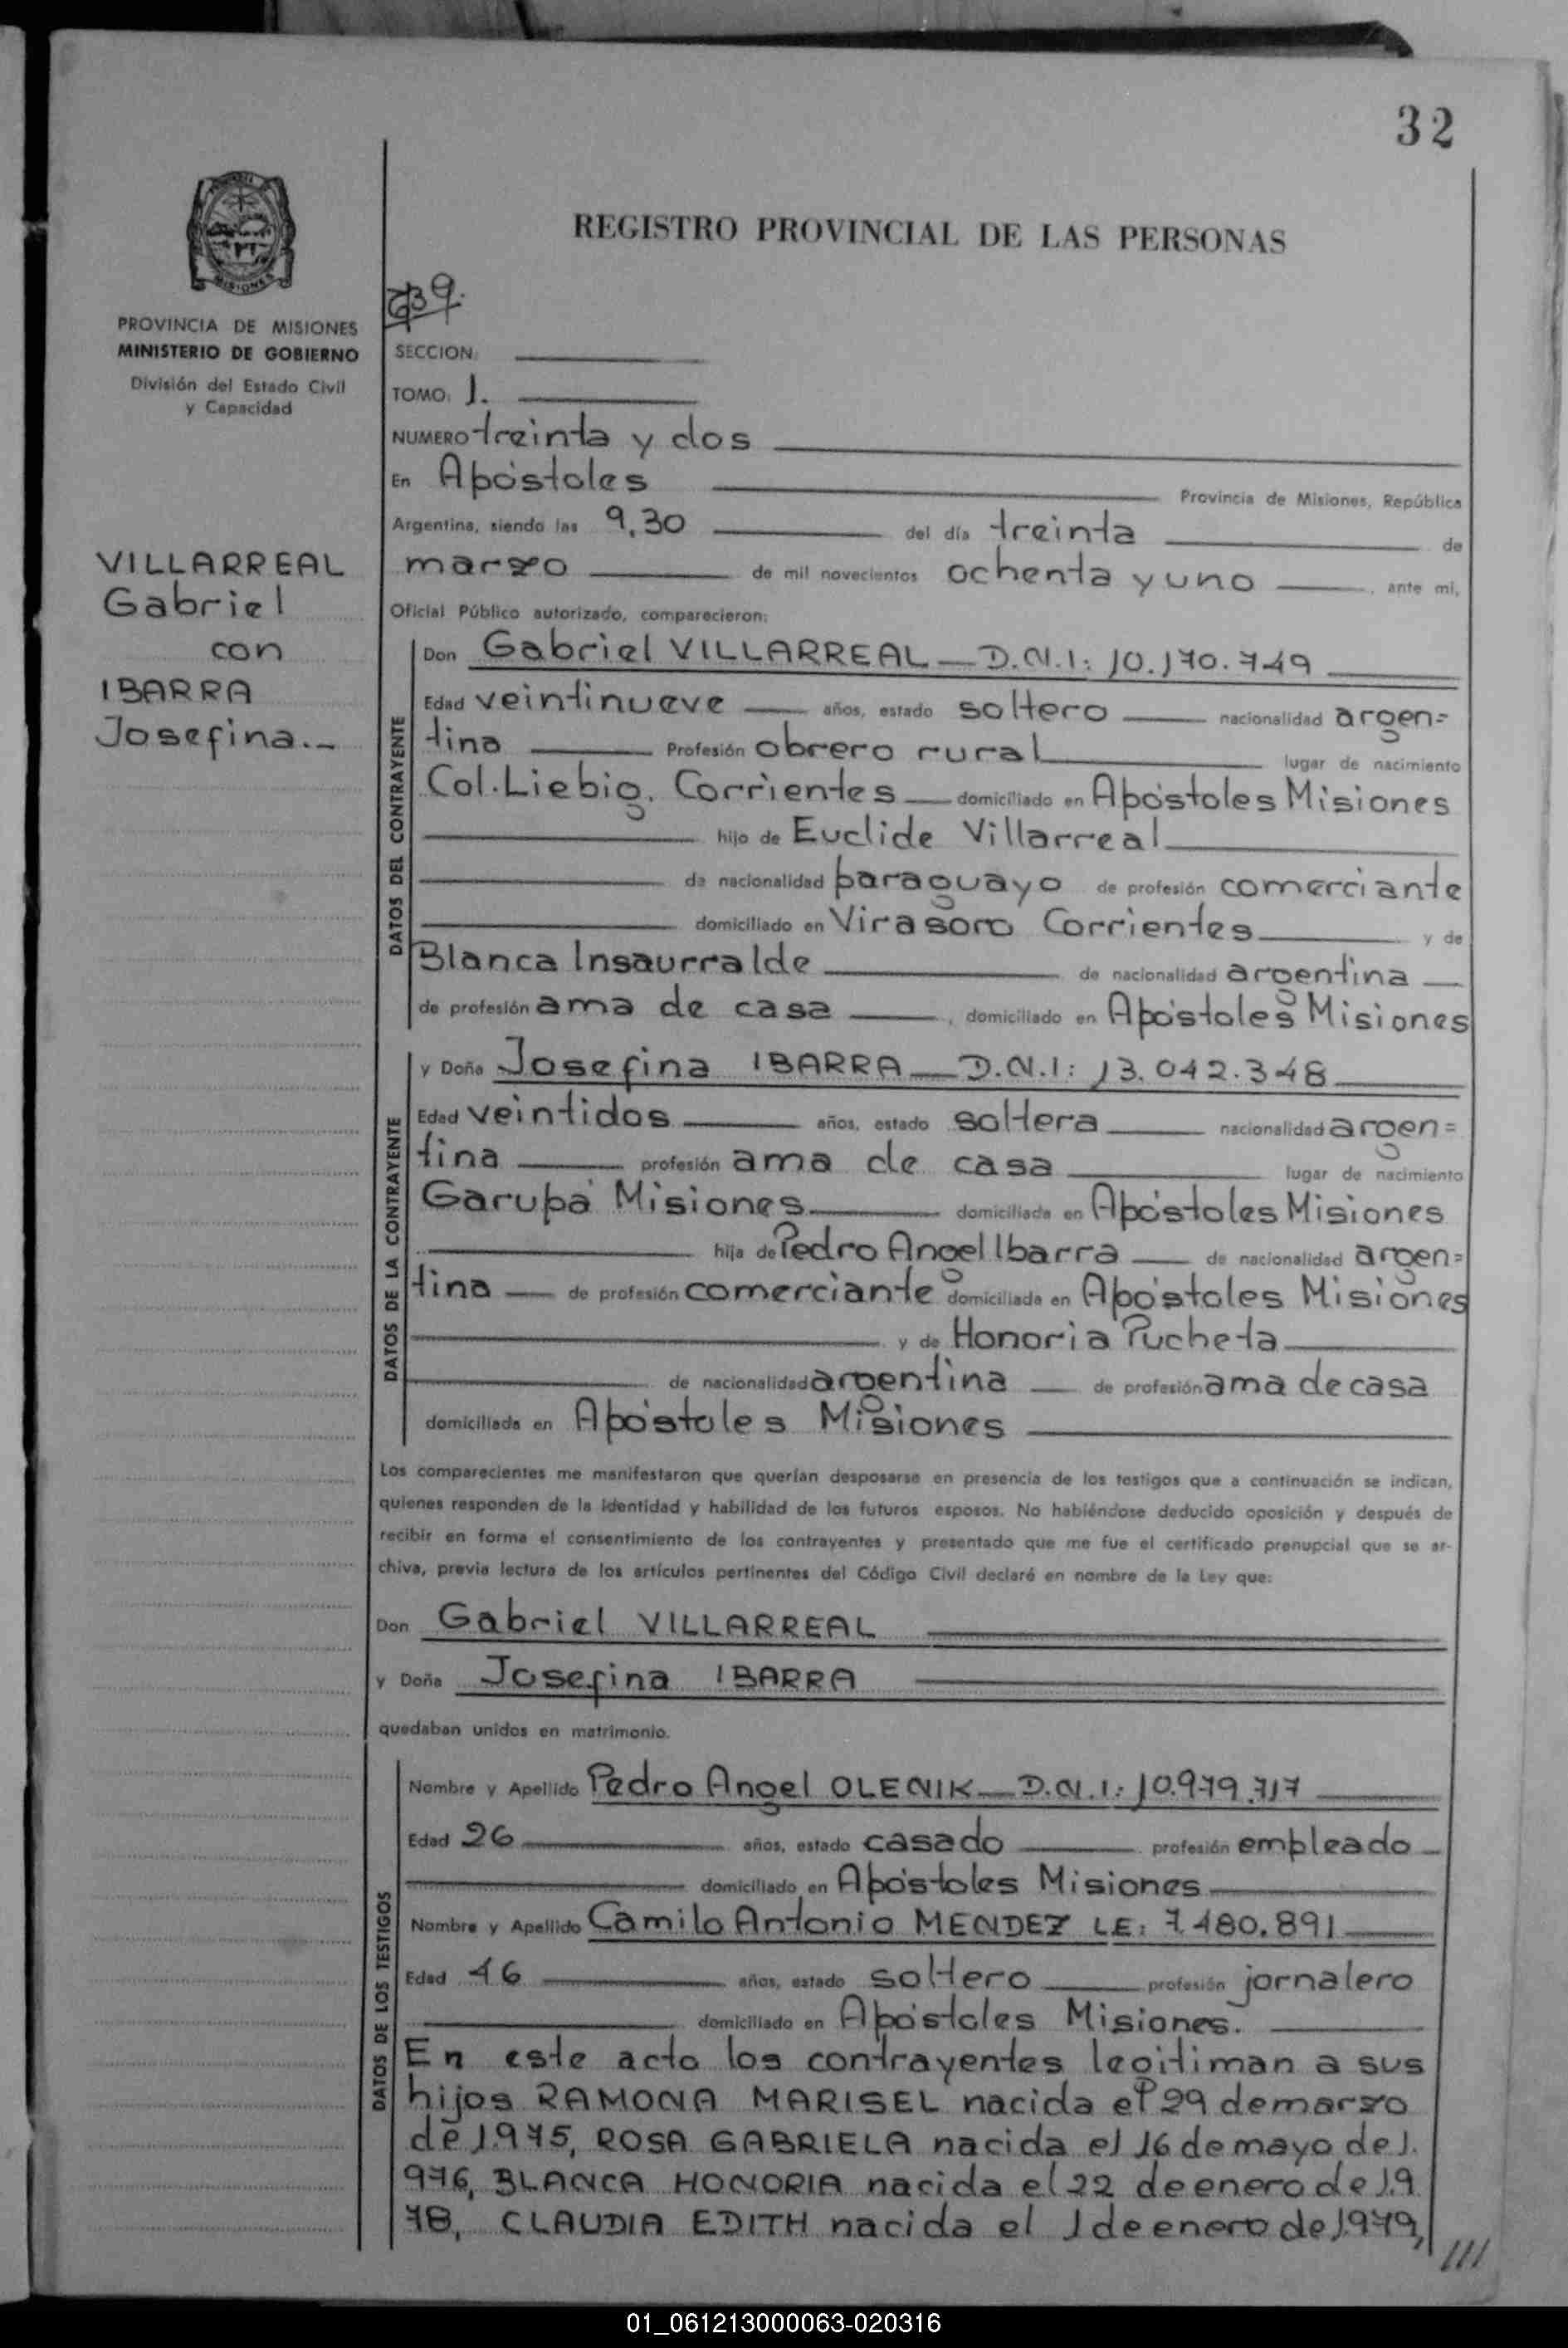 32
REGISTRO PROVINCIAL DE LAS PERSONAS
MISIONES
PROVINCIA DE MISIONES
MINISTERIO DE GOBIERNO
División del Estado Civil
y Capacidad
VILLARREAL
Gabriel
con
IBARRA
Josefina.-
SECCION:
TOMO: 1.
NUMERO treinta y dos
En Apóstoles Provincia de Misiones, República
Argentina, siendo las 9,30 del día treinta de
marzo de mil novecientos ochenta y uno, ante mi,
Oficial Público autorizado, comparecieron:
DATOS DEL CONTRAYENTE
Don Gabriel VILLARREAL - D.N.I: 10.170.749
Edad veintinueve años, estado soltero nacionalidad argen=
tina Profesión obrero rural lugar de nacimiento
Col. Liebig. Corrientes domiciliado en Apóstoles Misiones
hijo de Euclide Villarreal
de nacionalidad paraguayo de profesión comerciante
domiciliado en Virasoro Corrientes y de
Blanca Insaurralde de nacionalidad argentina
de profesión ama de casa, domiciliado en Apóstoles Misiones
DATOS DE LA CONTRAYENTE
y Doña Josefina IBARRA - D.N.I: 13.042.348
Edad veintidos años, estado soltera nacionalidad argen=
tina profesión ama de casa lugar de nacimiento
Garupá Misiones domiciliada en Apóstoles Misiones
hija de Pedro Angel Ibarra de nacionalidad argen=
tina de profesión comerciante domiciliada en Apóstoles Misiones
y de Honoria Pucheta
de nacionalidad argentina de profesión ama de casa
domiciliada en Apóstoles Misiones
Los comparecientes me manifestaron que querían desposarse en presencia de los testigos que a continuación se indican,
quienes responden de la identidad y habilidad de los futuros esposos. No habiéndose deducido oposición y después de
recibir en forma el consentimiento de los contrayentes y presentado que me fue el certificado prenupcial que se ar-
chiva, previa lectura de los artículos pertinentes del Código Civil declaré en nombre de la Ley que:
Don Gabriel VILLARREAL
y Doña Josefina IBARRA
quedaban unidos en matrimonio.
DATOS DE LOS TESTIGOS
Nombre y Apellido Pedro Angel OLENIK - D.N.I.: 10.979.717
Edad 26 años, estado casado profesión empleado
domiciliado en Apóstoles Misiones
Nombre y Apellido Camilo Antonio MENDEZ LE: 7.480.891
Edad 46 años, estado soltero profesión jornalero
domiciliado en Apóstoles Misiones.
En este acto los contrayentes legitiman a sus
hijos RAMONA MARISEL nacida el 29 de marzo
de 1.975, ROSA GABRIELA nacida el 16 de mayo de 1.
976, BLANCA HONORIA nacida el 22 de enero de 1.9
78, CLAUDIA EDITH nacida el 1 de enero de 1.979,
///
01_061213000063-020316